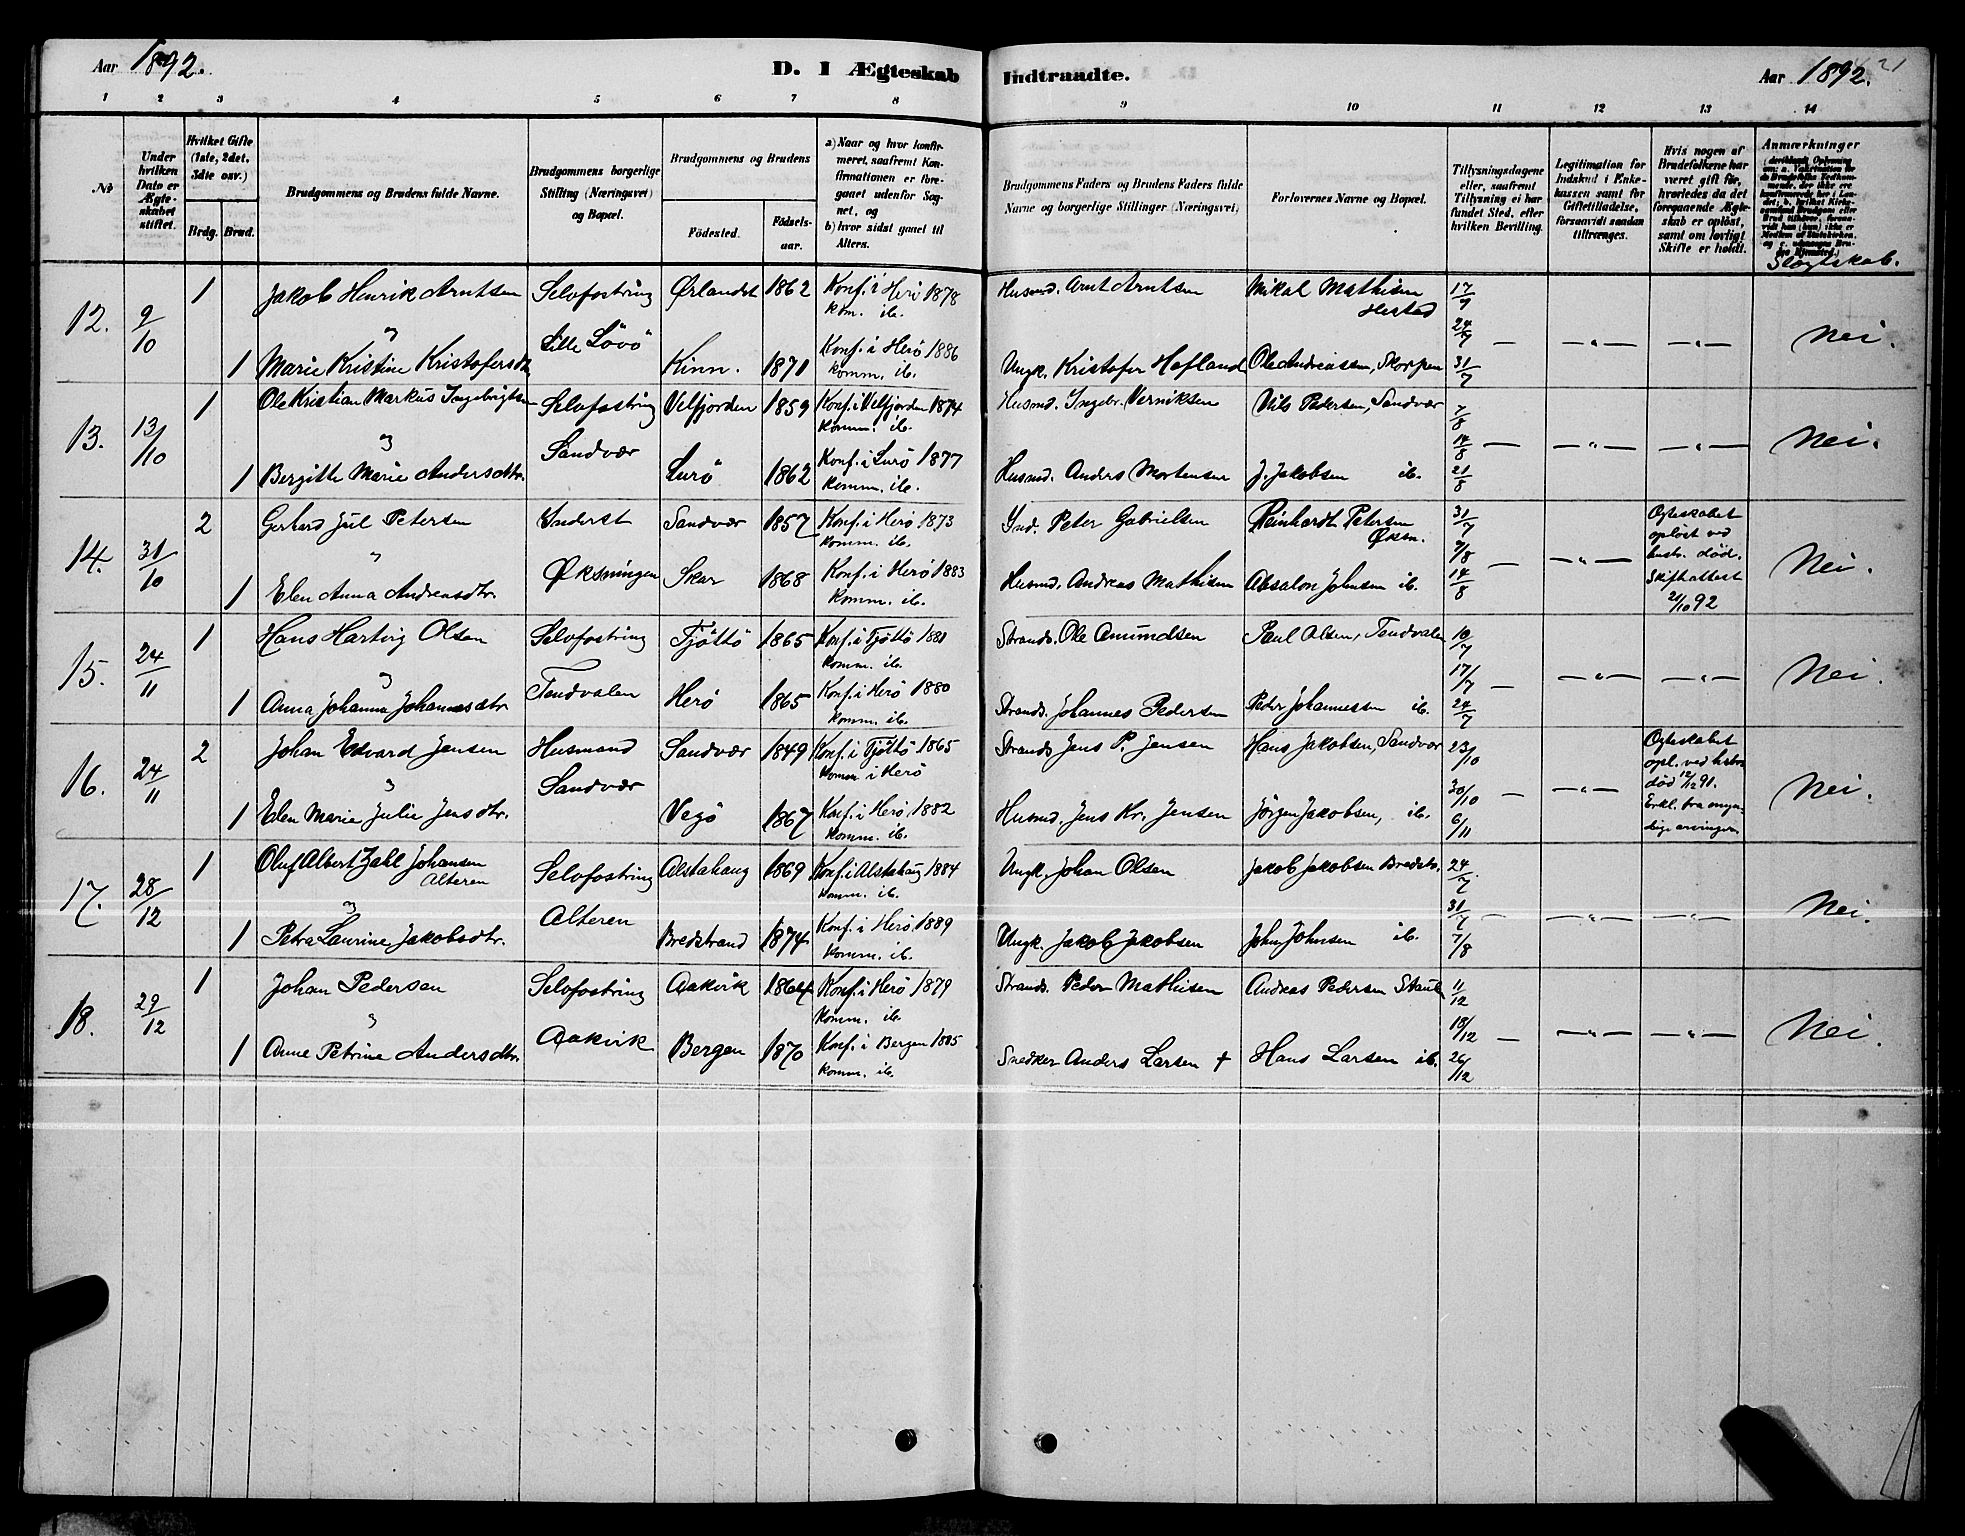 Aar 1892.
D. I Ægteskab Indtraadte.
Aar 1892. 21
1 2 3 4 5 6 7 8 9 10 11 12 13 14
No
Under hvilken Dato er Ægteskabet stiftet.
Hvilket Gifte (1ste, 2det, 3die osv.)
Brdg. Brud.
Brudgommens og Brudens fulde Navne.
Brudgommens borgerlige Stilling (Næringsvei) og Bopæl.
Brudgommens og Brudens
Fødested. Fødselsaar.
a) Naar og hvor konfirmeret, saafremt Konfirmationen er foregaaet udenfor Sognet, og
b) hvor sidst gaaet til Alters.
Brudgommens Faders og Brudens Faders fulde Navne og borgerlige Stillinger (Næringsvei)
Forlovernes Navne og Bopæl.
Tillysningsdagene eller, saafremt Tillysning ei har fundet Sted, efter hvilken Bevilling.
Legitimation for Indskud i Enkekassen samt for Giftetilladelse, forsaavidt saadan tiltrænges.
Hvis nogen af Brudefolkene har været gift før, hvorledes da det foregaaende Ægteskab er opløst, samt om lovligt Skifte er holdt.
Anmærkninger
Slægtskab.
12. 9/10 1 Jakob Henrik Arntsen Selvfostring Ørlandet 1862 Konf. i Herö 1878 Husmd. Arnt Arntsen Mikal Mathisen 17/7
kom. ib. Hestad
" Lille Lövö 24/7 — — " — — " — Nei.
1 Marie Kristine Kristofersdtr. Kinn. 1871 Konf. i Herö 1886 Ungk. Kristofer Hofland Ole Andreassen, Skorpen 31/7
komm. ib.
13. 13/10 1 Ole Kristian Markus Ingebrigtsen Selvfostring Velfjorden 1859 Konf. i Velfjorden 1874 Husmd. Ingebr. Verniksen Nils Pedersen, Sandvær 7/8
komm. ib.
" Sandvær 14/8 — — " — — " — Nei.
1 Bergitte Marie Andersdtr. Lurö 1862 Konf. i Lurö 1877 Husmd. Anders Mortensen J. Jakobsen ib. 21/8
komm. ib.
14. 31/10 2 Gerhard Jul Petersen Inderst Sandvær 1857 Konf. i Herö 1873 Ind. Peter Gabrielsen Reinhardt Petersen 31/7 Ogteskabet
komm. ib. Øksn. opløst ved
" Øksningen 7/8 — — " — hustr. död. Nei.
1 Elen Anna Andreasdtr. Skar 1868 Konf. i Herö 1883 Husmd. Andreas Mathisen Absalon Johnsen ib. 14/8 Skifteattest
komm. ib. 21/10 92
15. 24/11 1 Hans Hartvig Olsen Selvfostring Tjöttö 1865 Konf. i Tjöttö 1881 Strands. Ole Amundsen Paul Olsen, Tendvalen 10/7
komm. ib.
" Tendvalen 17/7 — — " — — " — Nei.
1 Anna Johanna Johannesdtr. Herö 1865 Konf. i Herö 1880 Strands. Johannes Pedersen Peder Johannessen ib. 24/7
komm. ib.
16. 24/11 2 Johan Edvard Jensen Husmand Sandvær 1849 Konf. i Tjöttö 1865 Strands. Jens P. Jensen Hans Jakobsen, Sandvær 23/10 Ogteskabet
Komm. i Herö opl. ved hstr.
" Sandvær 30/10 — — " — död 12/12 91. Nei.
1 Elen Marie Julie Jensdtr. Vegö 1867 Konf. i Herö 1882 Husmd. Jens Kr. Jensen Jörgen Jakobsen, ib. 6/11 Erkl. fra myn-
komm. ib. dige arvinger.
17. 28/12 1 Oluf Albert Zahl Johansen Selvfostring Alstahaug 1869 Konf. i Alstahaug 1884 Ungk. Johan Olsen Jakob Jakobsen Bredstr. 24/7
Alteren komm. ib.
" Alteren 31/7 — — " — — " — Nei.
1 Petra Laurine Jakobsdtr. Bredstrand 1874 Konf. i Herö 1889 Ungk. Jakob Jakobsen John Johnsen ib. 7/8
komm. ib.
18. 29/12 1 Johan Pedersen Selvfostring Aakvik 1864 Konf. i Herö 1879 Strands. Peder Mathisen Andreas Pedersen 11/12
komm. ib.
" Aakvik 18/12 — — " — — " — Nei.
1 Anne Petrine Andersdtr. Bergen 1870 Konf. i Bergen 1885 Snedker Anders Larsen + Hans Larsen ib. 26/12
komm. ib.